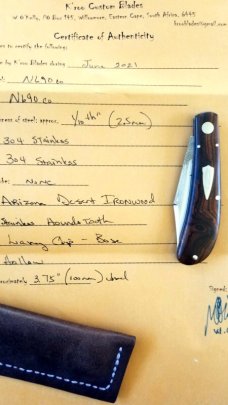 K'roo Custom Blades
W.O Kelly, PO Box 145, Willowmore, Eastern Cape, South Africa, 6445
krooblades@gmail.com
Certificate of Authenticity
to certify the following:
by K'roo Blades during June 2021
N690co
N690co
ness of steel: approx. 1/10th" (2.5mm)
304 Stainless
304 Stainless
None
Arizona Desert Ironwood
Stainless Houndstooth
Lanny Clip - Base
Hollow
proximately 3.75" (100mm) closed
Signed: